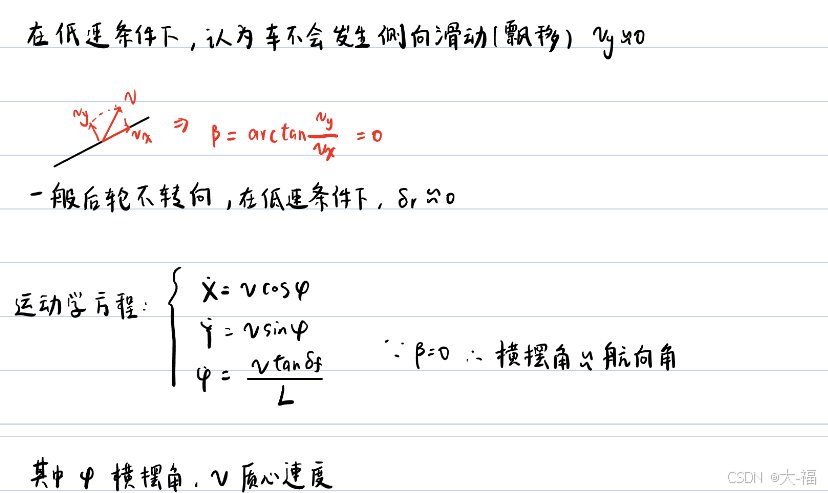 在低速条件下,认为车不会发生侧向滑动(飘移) vy≈0
vy v vx ⇒ β = arctan vy/vx = 0
一般后轮不转向,在低速条件下, δr≈0
运动学方程: { Ẋ = v cosφ
Ẏ = v sinφ
φ̇ = v tanδf / L ∵ β=0 ∴ 横摆角≈航向角
其中 φ 横摆角, v 质心速度
CSDN @大-福